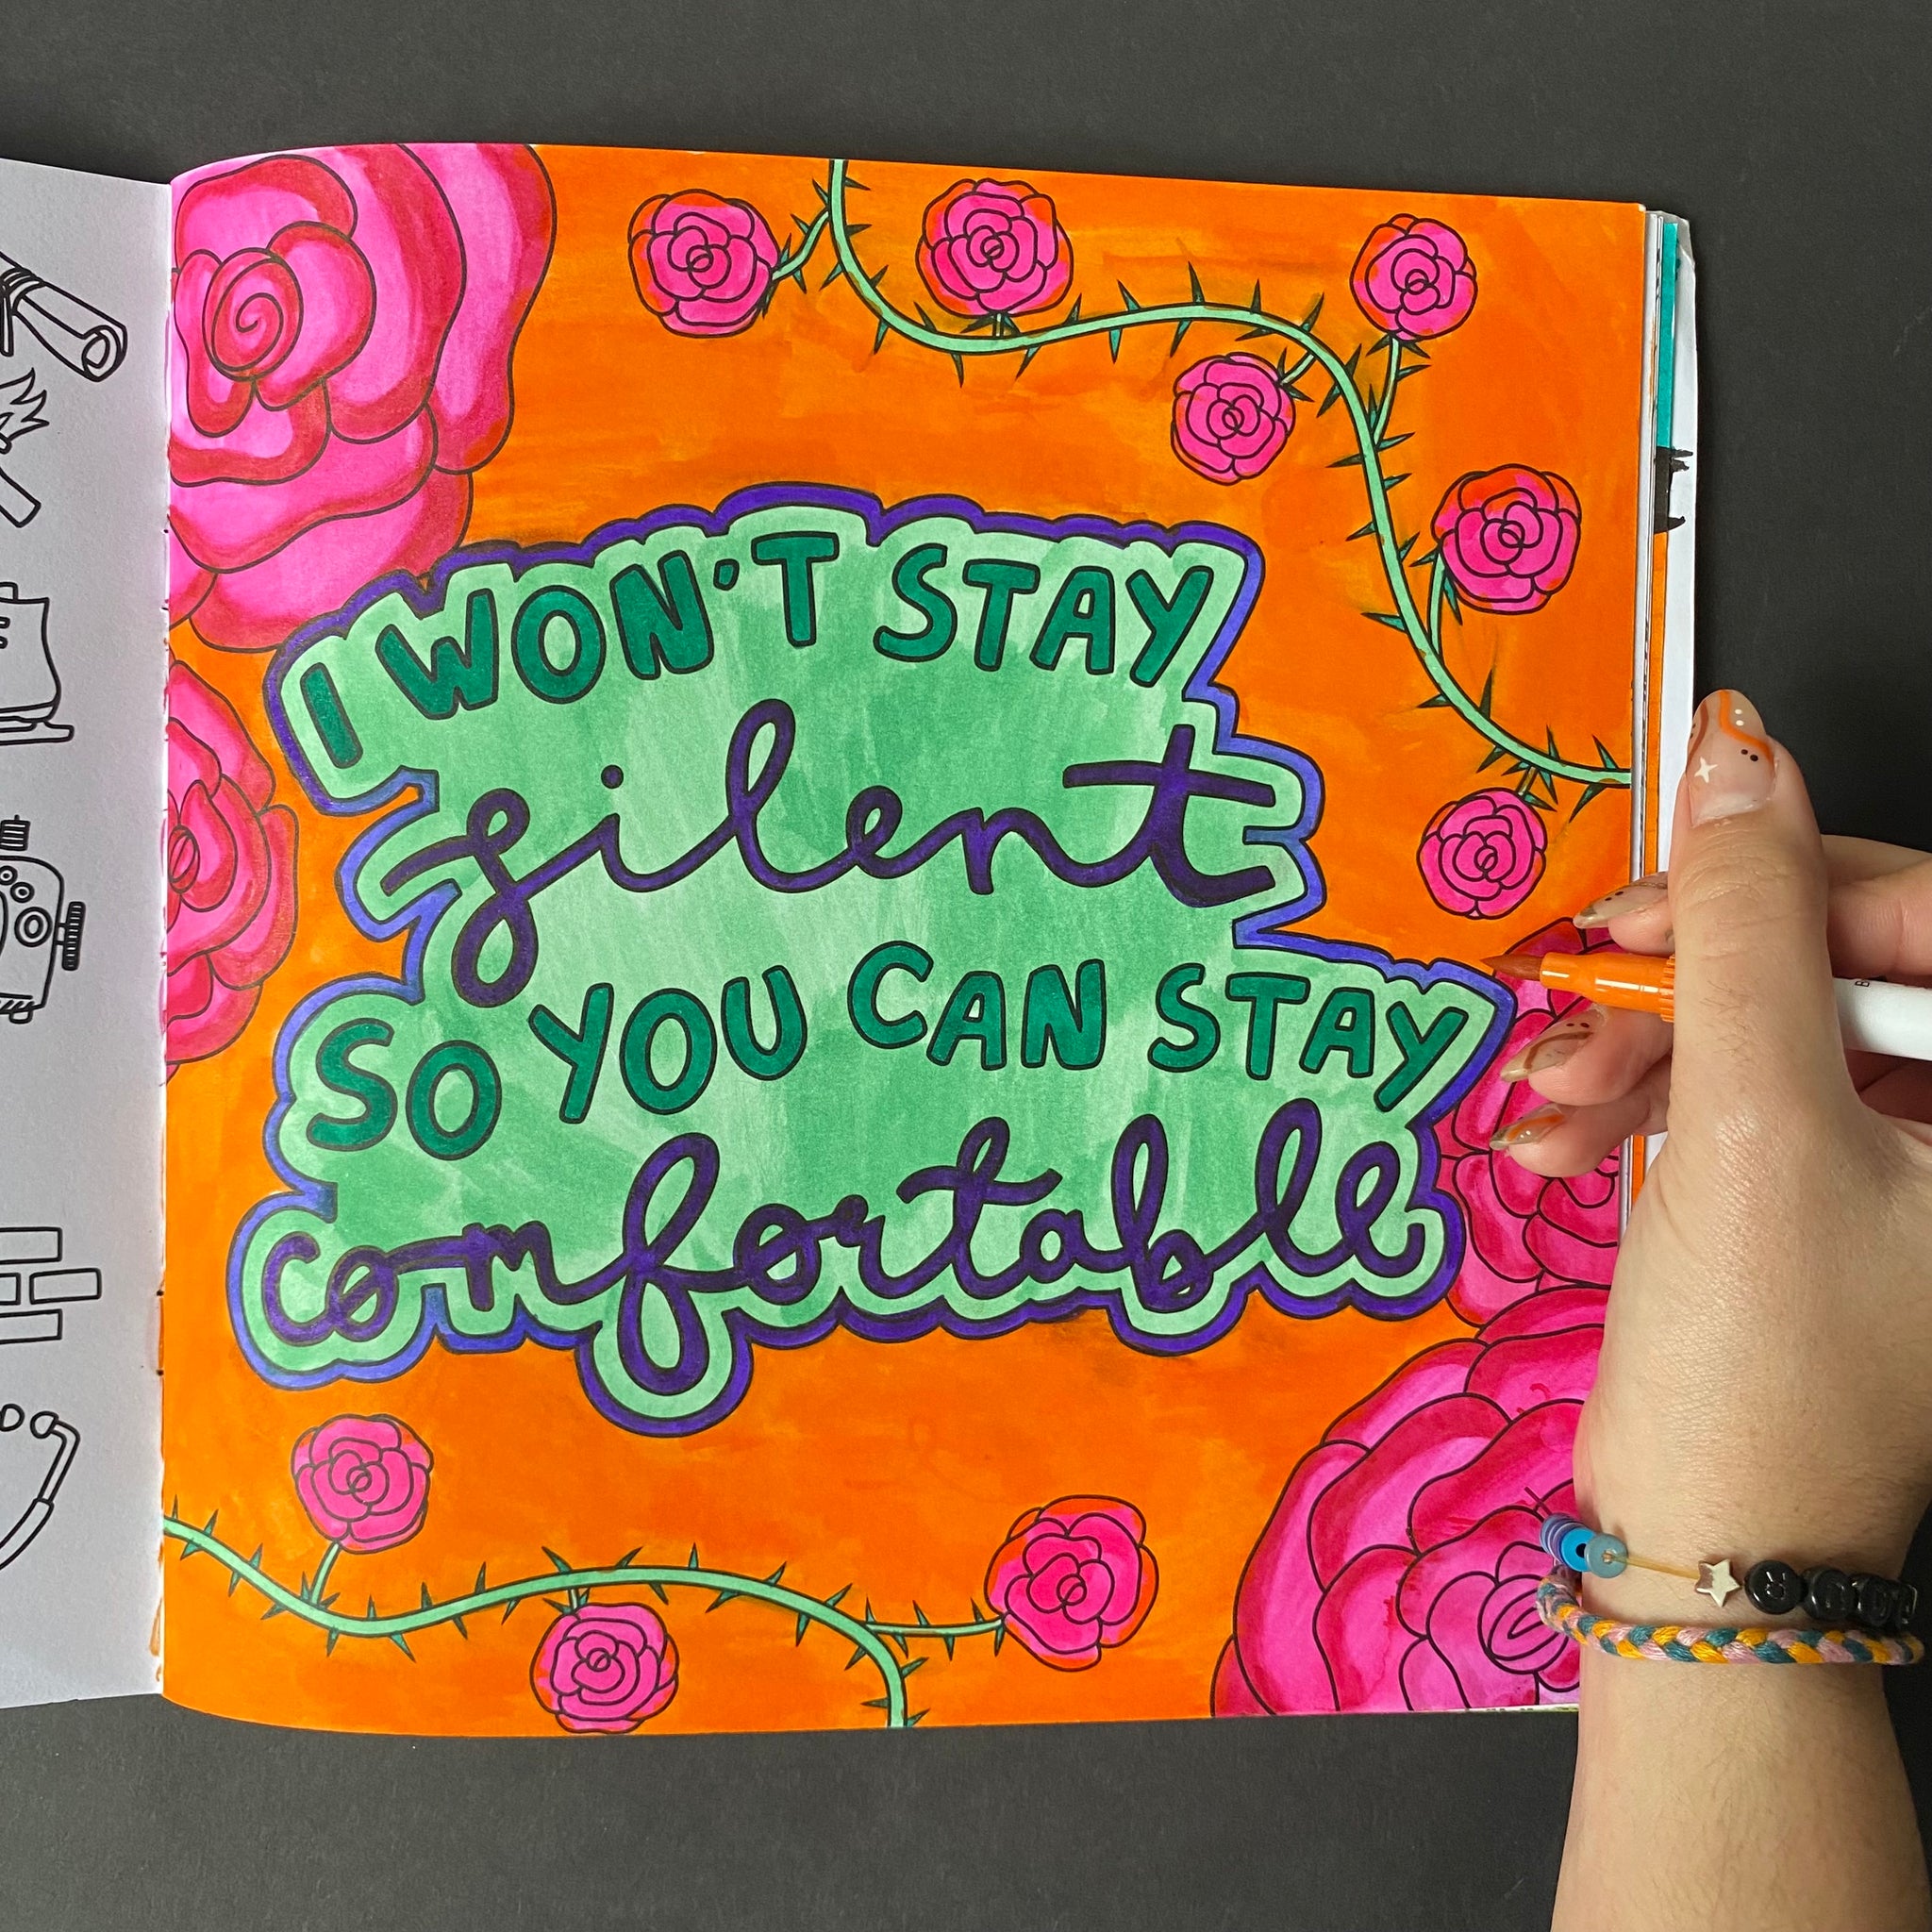 I WON'T STAY
silent
SO YOU CAN STAY
comfortable